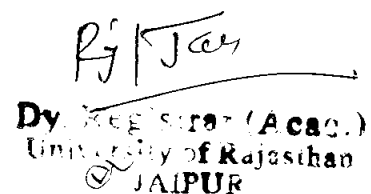 Rj | Jai
Dy. Registrar (Acad.)
University of Rajasthan
JAIPUR